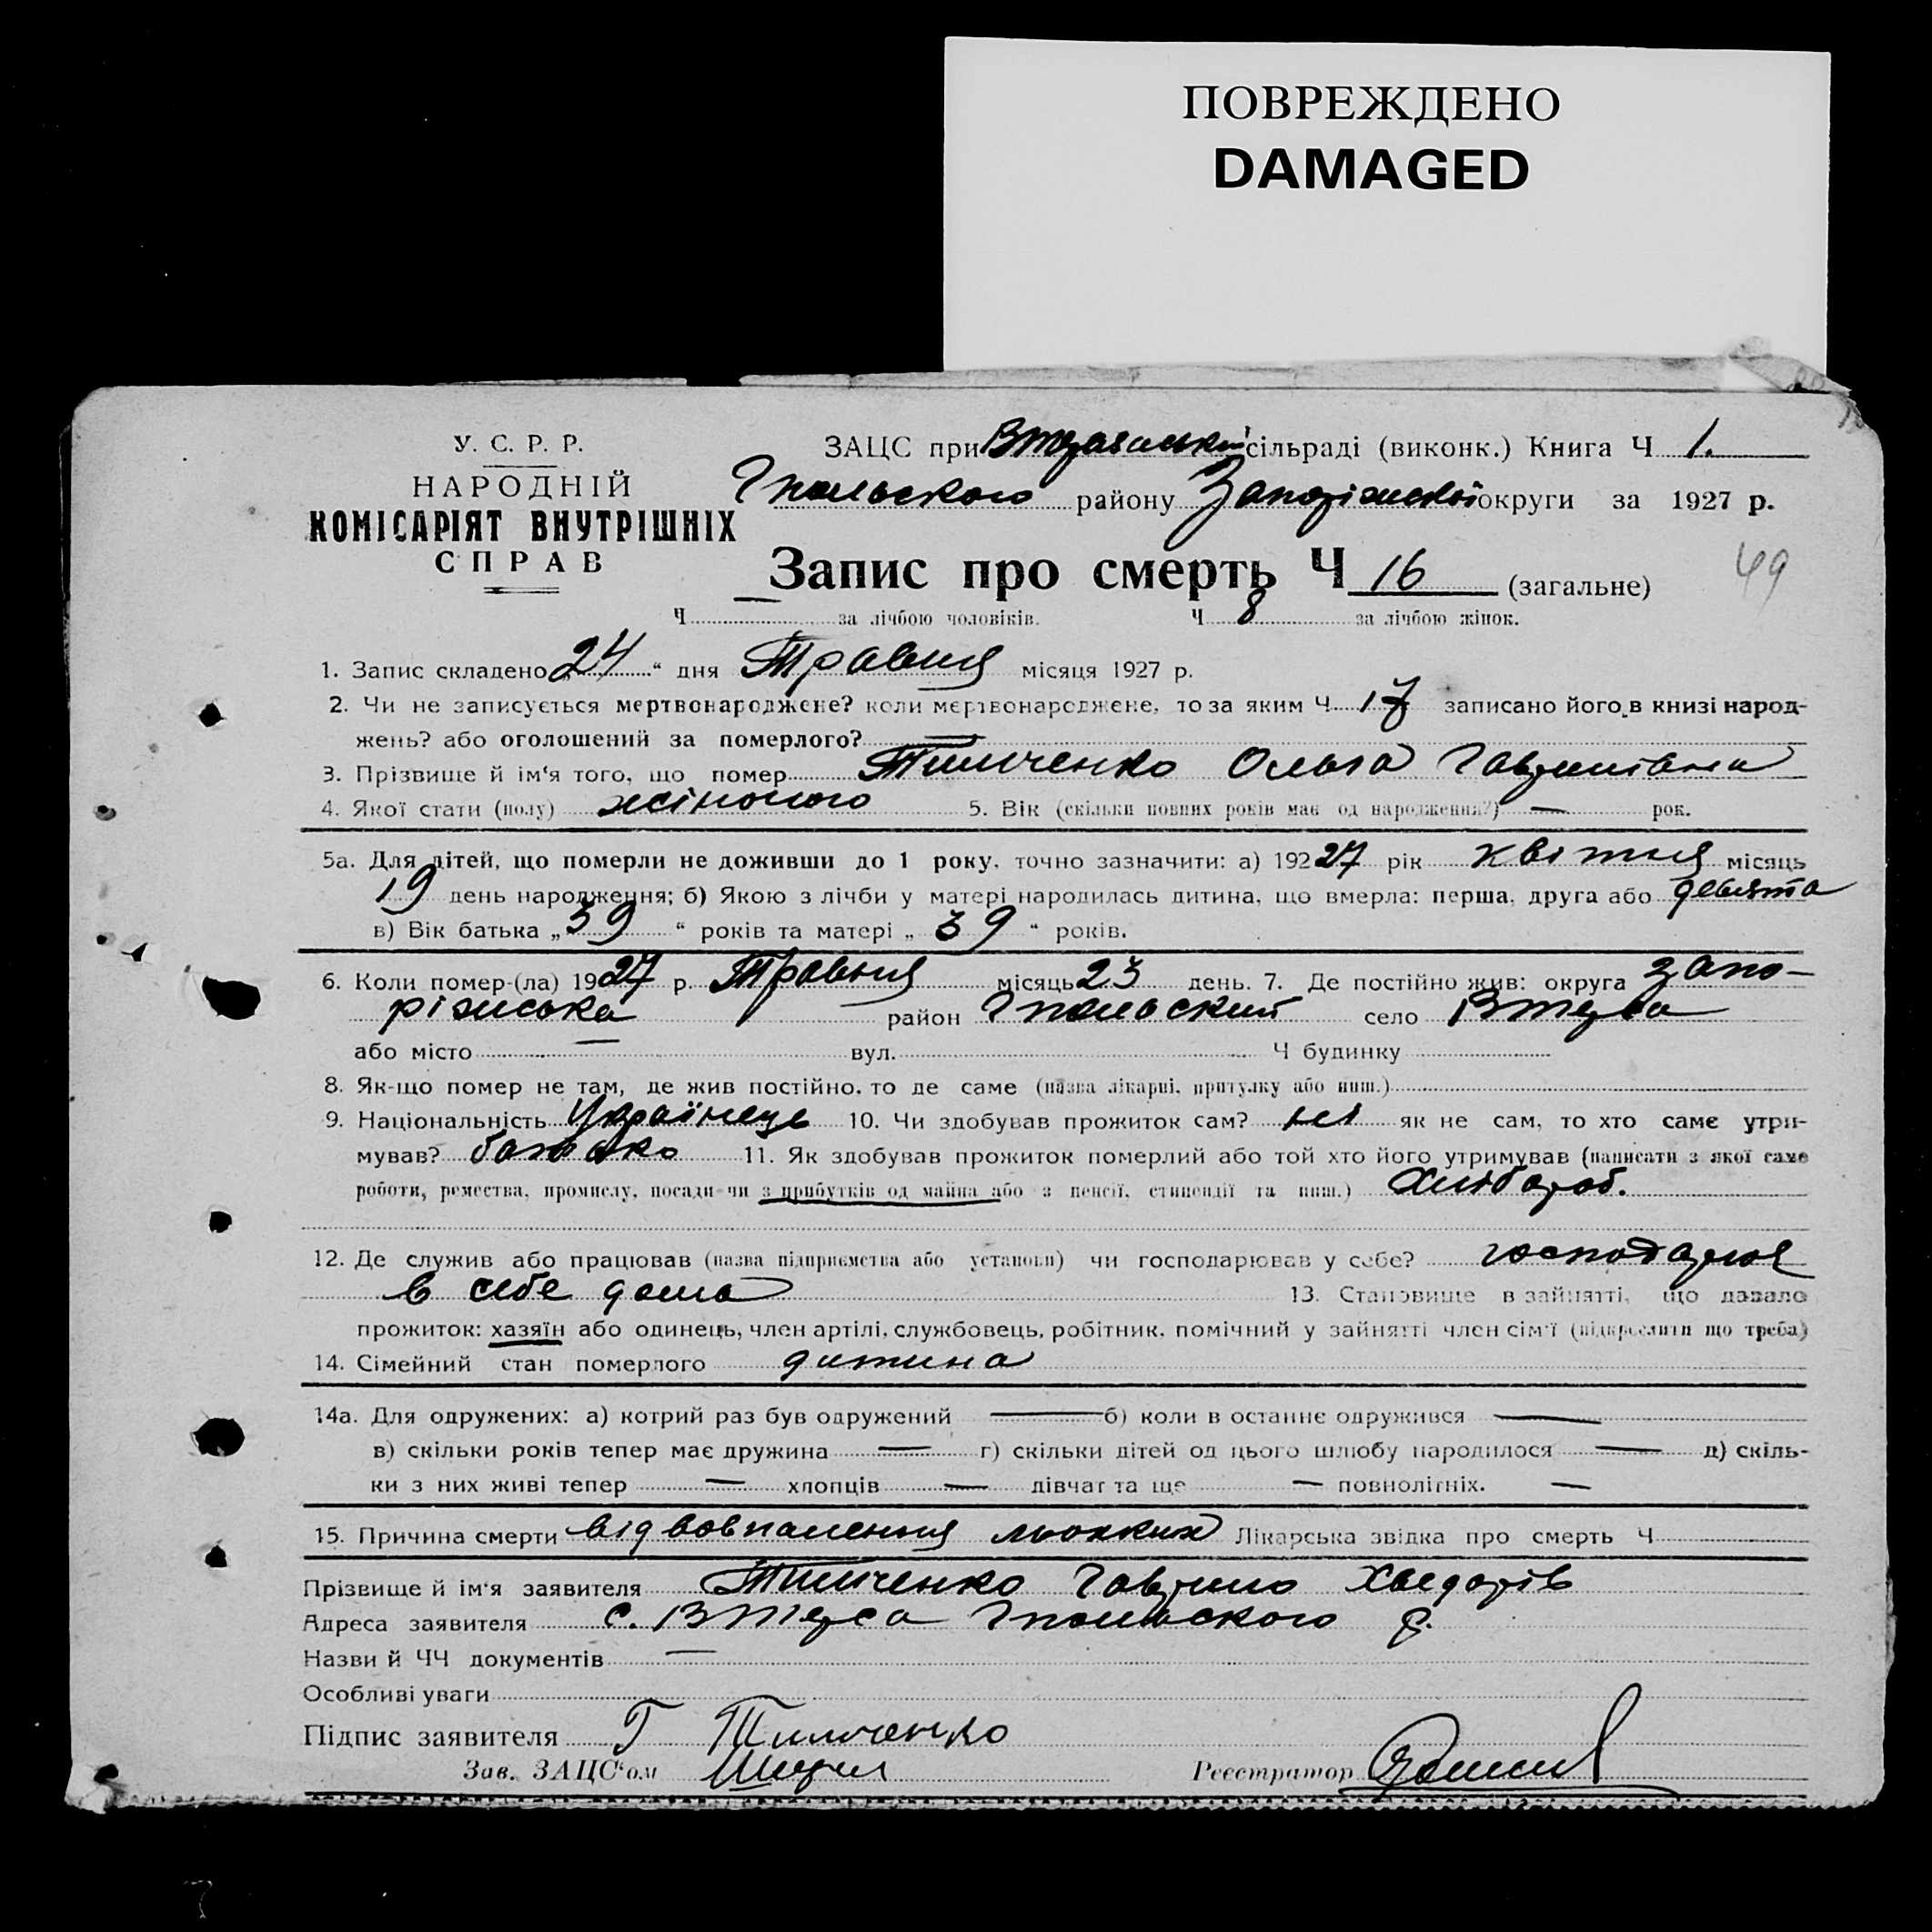 ПОВРЕЖДЕНО
DAMAGED
У. С. Р. Р.
НАРОДНІЙ
КОМІСАРІЯТ ВНУТРІШНІХ
СПРАВ
ЗАЦС при сільраді (виконк.) Книга Ч 1.
району Запоріжської округи за 1927 р.
Запис про смерть Ч 16 (загальне)
49
Ч за лічбою чоловіків. Ч 8 за лічбою жінок.
1. Запис складено „24“ дня Травня місяця 1927 р.
2. Чи не записується мертвонароджене? коли мертвонароджене, то за яким Ч 17 записано його в книзі народ-
жень? або оголошений за померлого? —
3. Прізвище й ім'я того, що помер Тимченко Ольга Гаврилівна
4. Якої стати (полу) жіночого 5. Вік (скільки повних років має од народження?) — рок.
5а. Для дітей, що померли не доживши до 1 року, точно зазначити: а) 19227 рік квітня місяць
19 день народження; б) Якою з лічби у матері народилась дитина, що вмерла: перша, друга або девята
в) Вік батька „39“ років та матері „39“ років.
6. Коли помер-(ла) 1927 р. Травня місяць 23 день. 7. Де постійно жив: округа Запо-
ріжська район село
або місто — вул. Ч будинку
8. Як-що помер не там, де жив постійно, то де саме (назва лікарні, притулку або инш.)
9. Національність Українець 10. Чи здобував прожиток сам? ні як не сам, то хто саме утри-
мував? батько 11. Як здобував прожиток померлий або той хто його утримував (написати з якої саме
роботи, ремества, промислу, посади чи з прибутків од майна або з пенсії, стипендії та инш.) Хлібороб.
12. Де служив або працював (назва підприємства або установи) чи господарював у себе? господарює
в себе дома 13. Становище в зайнятті, що давало
прожиток: хазяїн або одинець, член артілі, службовець, робітник, помічний у зайнятті член сім'ї (підкреслити що треба)
14. Сімейний стан померлого дитина
14а. Для одружених: а) котрий раз був одружений — б) коли в останнє одружився —
в) скільки років тепер має дружина — г) скільки дітей од цього шлюбу народилося — д) скіль-
ки з них живі тепер — хлопців — дівчат та ще — повнолітніх. —
15. Причина смерти від воспаленния льохких Лікарська звідка про смерть Ч
Прізвище й ім'я заявителя Тимченко Гаврило Хведорів
Адреса заявителя с. р.
Назви й ЧЧ документів —
Особливі уваги
Підпис заявителя Г Тимченко
Зав. ЗАЦС'ом Реєстратор